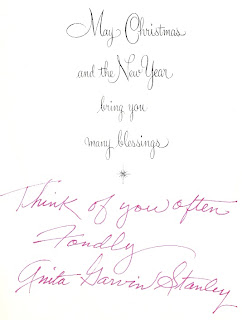 May Christmas
and the New Year
bring you
many blessings
Think of you often
Fondly
Anita Garvin Stanley